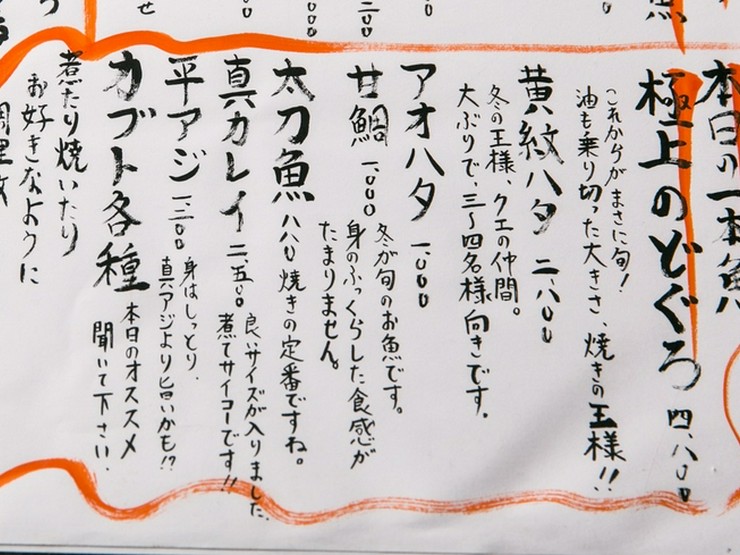 本日の一本魚
極上のどぐろ 四、八〇〇
これからがまさに旬！
油も乗り切った大きさ、焼きの王様！！
黄紋ハタ 二、八〇〇
冬の王様、クエの仲間。
大ぶりで、三〜四名様向きです。
アオハタ 一、〇〇〇
甘鯛 一、〇〇〇
冬が旬のお魚です。
身のふっくらした食感が
たまりません。
太刀魚 八八〇
焼きの定番ですね。
真カレイ 二、五〇〇
良いサイズが入りました。
煮てサイコーです！！
平アジ 一、二〇〇
身はしっとり、
真アジより旨いかも！？
カブト各種
本日のオススメ
聞いて下さい。
煮たり焼いたり
お好きなように